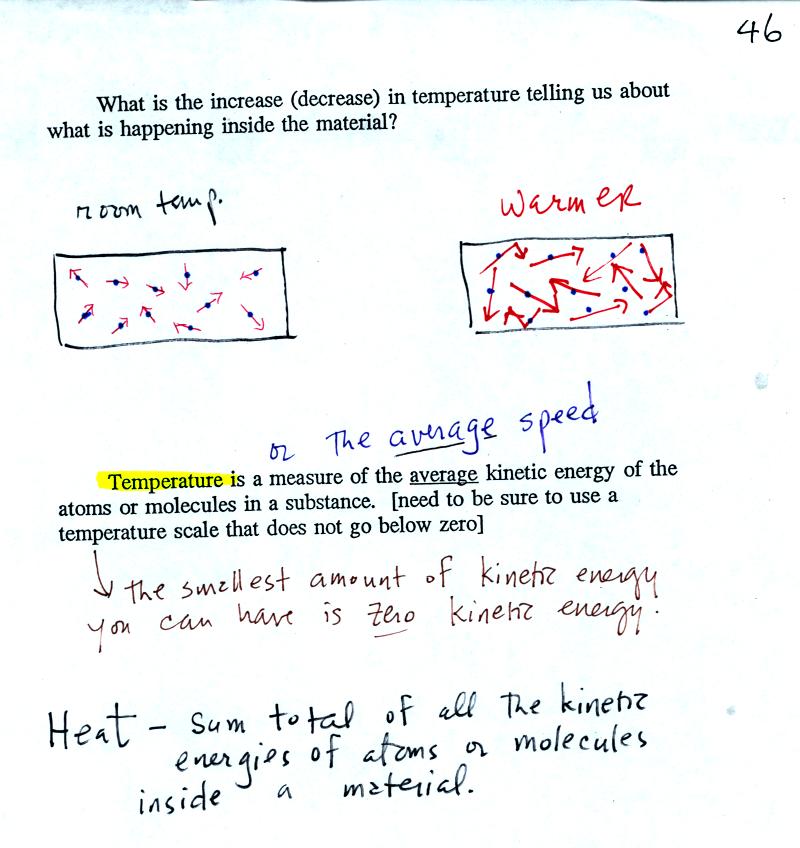 46
What is the increase (decrease) in temperature telling us about
what is happening inside the material?
room temp.
warmer
or the average speed
Temperature is a measure of the average kinetic energy of the
atoms or molecules in a substance. [need to be sure to use a
temperature scale that does not go below zero]
the smallest amount of kinetic energy
you can have is zero kinetic energy.
Heat - sum total of all the kinetic
energies of atoms or molecules
inside a material.